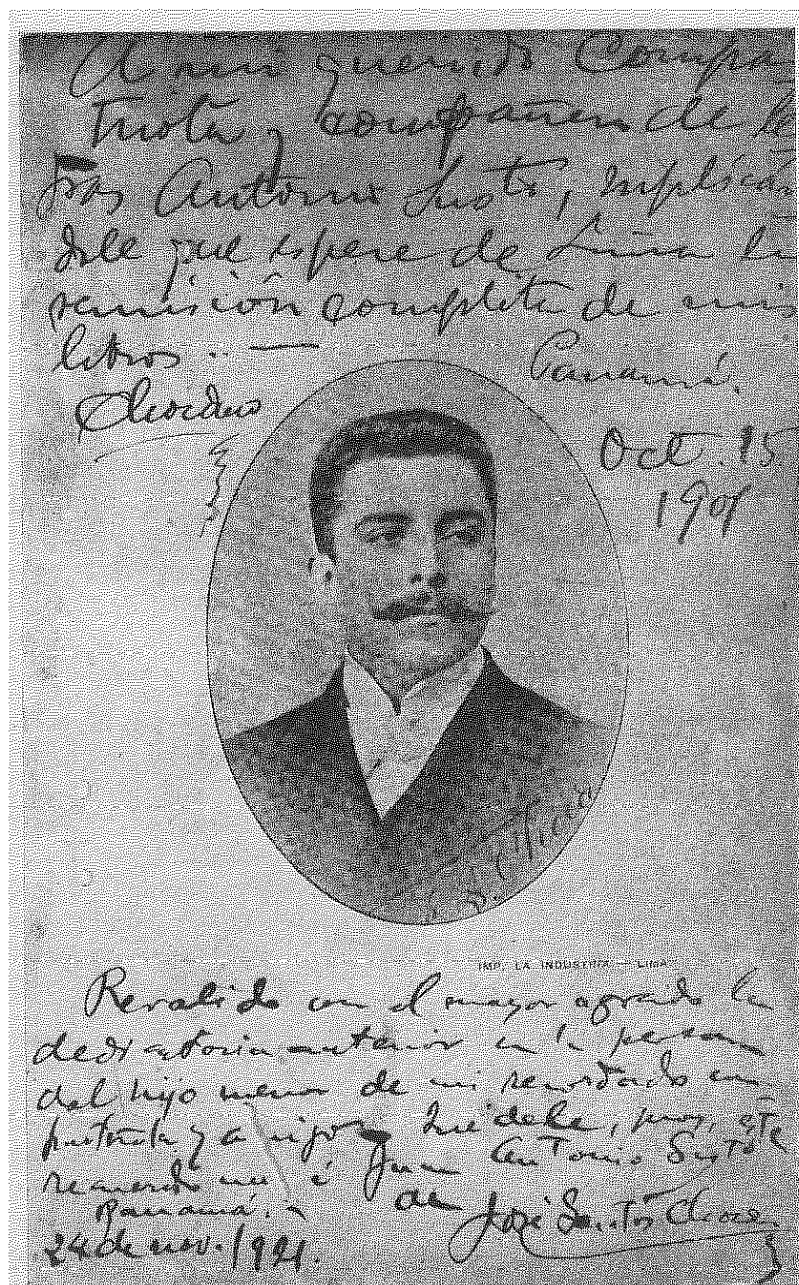 A mi querido Compa-
triota y compañero de le-
tras Antonio Susto, suplicán-
dole que espere de Lima la
remisión completa de mis
libros. —
Panamá.
Chocano
Oct. 15
1901
IMP. LA INDUSTRIA — LIMA
Revalido con el mayor agrado la
dedicatoria anterior en la persona
del hijo menor de mi recordado com-
patriota y amigo. Quédele, pues, este
recuerdo a Juan Antonio Susto
de José Santos Chocano
Panamá.
24 de nov. 1921.